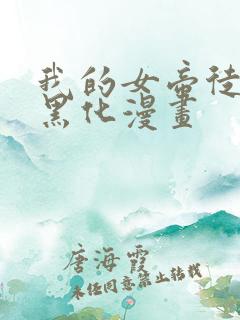 我的女帝徒
黑化漫畫
唐海霞
未经同意禁止转载